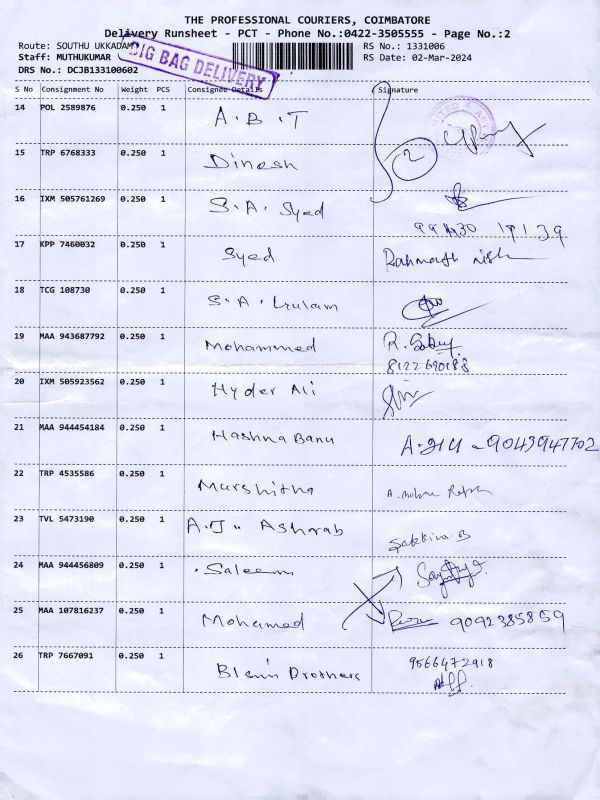 THE PROFESSIONAL COURIERS, COIMBATORE
Delivery Runsheet - PCT - Phone No.:0422-3505555 - Page No.:2
Route: SOUTHU UKKADAM RS No.: 1331006
Staff: MUTHUKUMAR RS Date: 02-Mar-2024
DRS No.: DCJB133100602
BIG BAG DELIVERY
S No Consignment No Weight PCS Consignee Details Signature
14 POL 2589876 0.250 1 A.B.T
2
15 TRP 6768333 0.250 1 Dinesh
16 IXM 505761269 0.250 1 S.A. Syed
17 KPP 7460032 0.250 1 Syed Rahmath
18 TCG 108730 0.250 1 S.A.
19 MAA 943687792 0.250 1 Mohammed R.
8122690188
20 IXM 505923562 0.250 1 Hyder Ali
21 MAA 944454184 0.250 1 Hashna Banu 9043947702
22 TRP 4535586 0.250 1 Murshitha
23 TVL 5473190 0.250 1 A.J. Asharab Sakkina.B
24 MAA 944456809 0.250 1 Saleem
25 MAA 107816237 0.250 1 Mohamed 9092385859
26 TRP 7667091 0.250 1 Brothers 9566472918